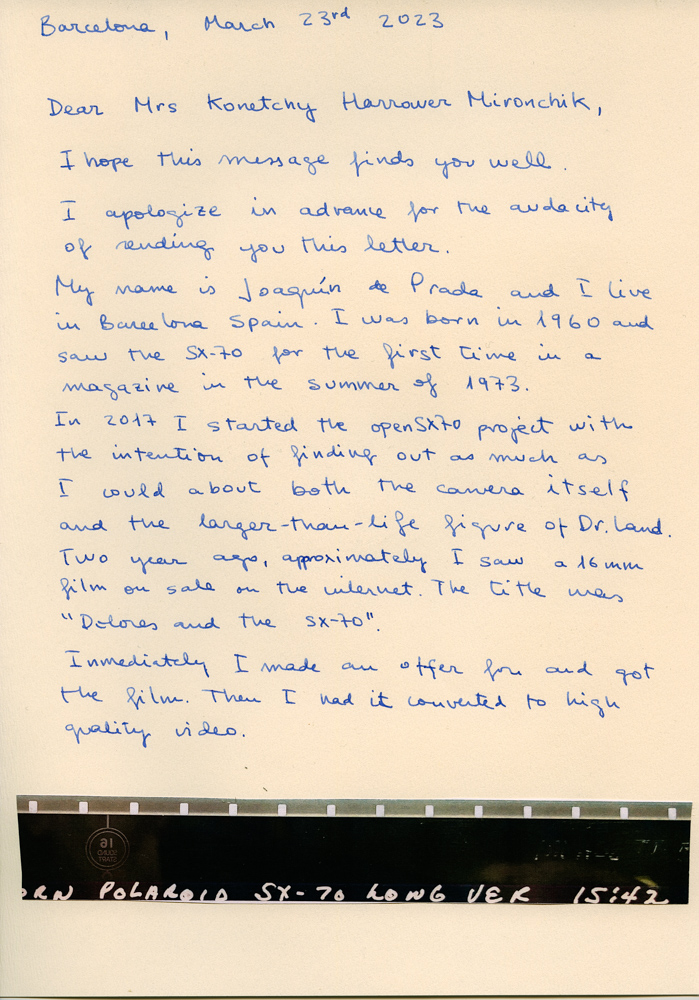 Barcelona, March 23rd 2023
Dear Mrs Konetchy Harrower Mironchik,
I hope this message finds you well.
I apologize in advance for the audacity
of sending you this letter.
My name is Joaquín de Prada and I live
in Barcelona Spain. I was born in 1960 and
saw the SX-70 for the first time in a
magazine in the summer of 1973.
In 2017 I started the openSX70 project with
the intention of finding out as much as
I could about both the camera itself
and the larger-than-life figure of Dr. Land.
Two year ago, aproximately I saw a 16mm
film on sale on the internet. The title was
"Dolores and the SX-70".
Inmediately I made an offer for and got
the film. Then I had it converted to high
quality video.
16
SOUND
START
ORN POLAROID SX-70 LONG VER 15:42